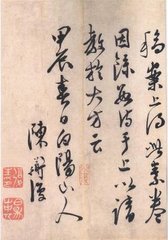 案上得此素卷
因錄數詩于上以請
教於大方云
甲辰春日白陽山人
陳道復